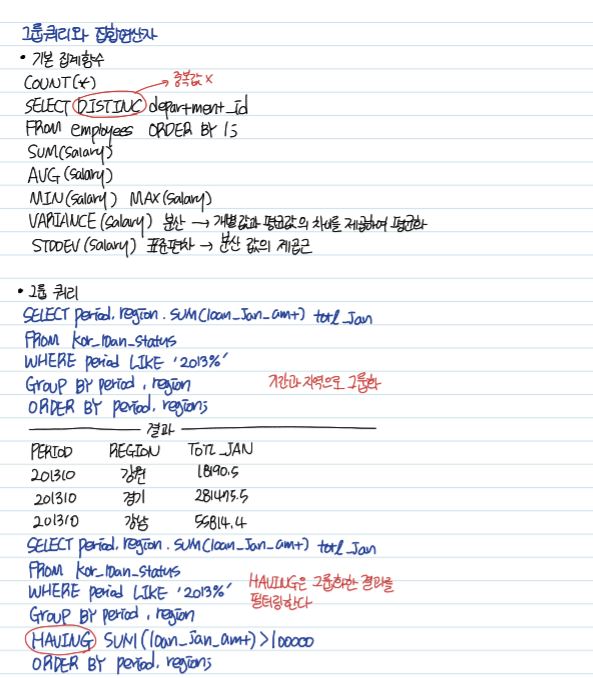 그룹쿼리와 집합연산자
• 기본 집계함수
COUNT(*)
→ 중복값 X
SELECT DISTINC department_id
FROM employees ORDER BY 1;
SUM(salary)
AVG(salary)
MIN(salary) MAX(salary)
VARIANCE(salary) 분산 → 개별값과 평균값의 차이를 제곱하여 평균화
STDDEV(salary) 표준편차 → 분산 값의 제곱근
• 그룹 쿼리
SELECT period, region, SUM(loan_jan_amt) totl_jan
FROM kor_loan_status
WHERE period LIKE '2013%'
Group BY period, region 기간과 지역으로 그룹화
ORDER BY period, region;
결과
PERIOD REGION TOTL_JAN
201310 강원 18190.5
201310 경기 281475.5
201310 강남 55814.4
SELECT period, region, SUM(loan_jan_amt) totl_jan
FROM kor_loan_status
WHERE period LIKE '2013%' HAVING은 그룹화한 결과를
필터링한다
Group BY period, region
HAVING SUM(loan_jan_amt)>100000
ORDER BY period, region;